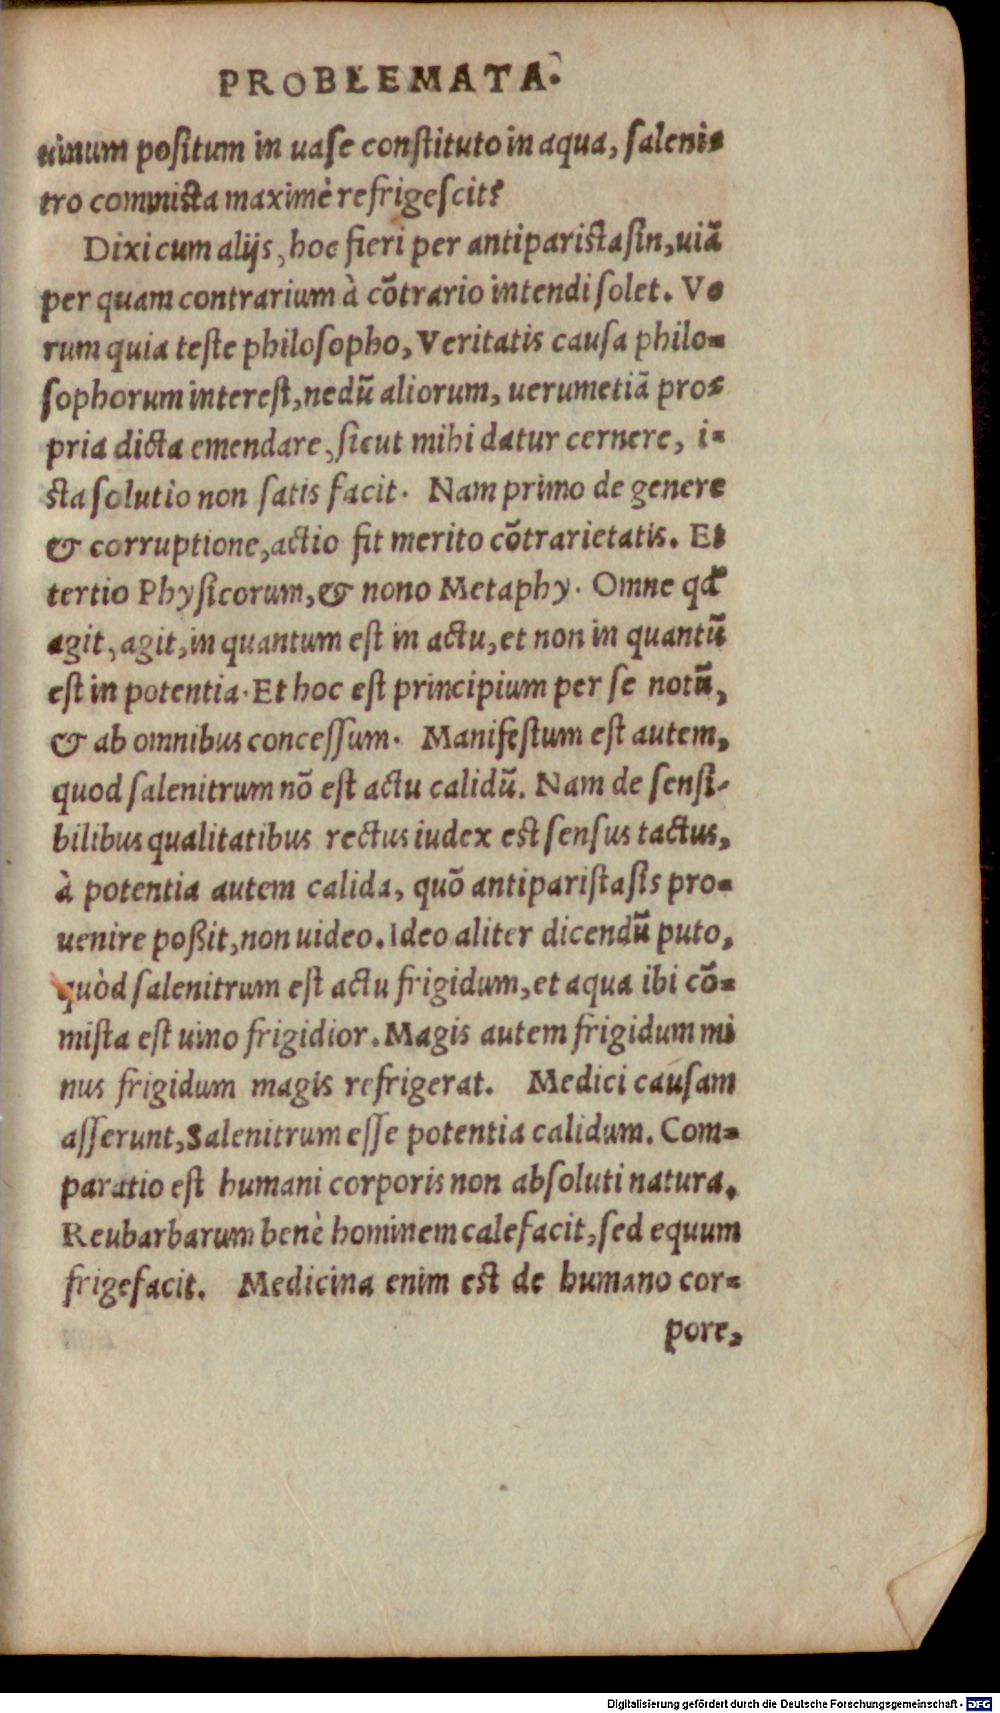 PROBLEMATA.
uinum positum in uase constituto in aqua, saleni-
tro commista maximè refrigescit?
Dixi cum alijs, hoc fieri per antiparistasin, uiā
per quam contrarium à cōtrario intendi solet. Ve
rum quia teste philosopho, Veritatis causa philo-
sophorum interest, nedū aliorum, uerumetiā pro-
pria dicta emendare, sicut mihi datur cernere, i-
sta solutio non satis facit. Nam primo de genere
& corruptione, actio fit merito cōtrarietatis. Et
tertio Physicorum, & nono Metaphy. Omne qd
agit, agit, in quantum est in actu, et non in quantū
est in potentia. Et hoc est principium per se notū,
& ab omnibus concessum. Manifestum est autem,
quod salenitrum nō est actu calidū. Nam de sensi-
bilibus qualitatibus rectus iudex est sensus tactus,
à potentia autem calida, quō antiparistasis pro-
uenire poßit, non uideo. Ideo aliter dicendū puto,
quòd salenitrum est actu frigidum, et aqua ibi cō-
mista est uino frigidior. Magis autem frigidum mi
nus frigidum magis refrigerat. Medici causam
asserunt, Salenitrum esse potentia calidum. Com-
paratio est humani corporis non absoluti natura.
Reubarbarum benè hominem calefacit, sed equum
frigefacit. Medicina enim est de humano cor-
pore,
Digitalisierung gefördert durch die Deutsche Forschungsgemeinschaft - DFG